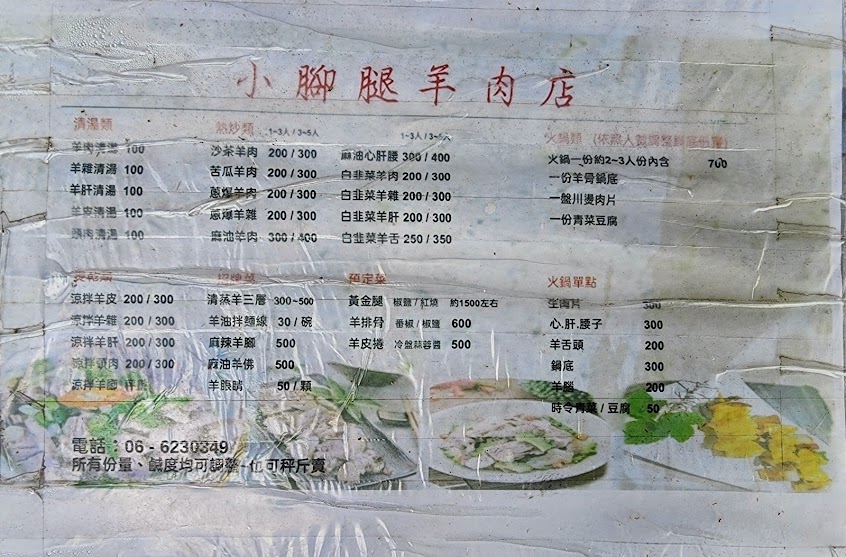 小腳腿羊肉店
清湯類
羊肉清湯 100
羊雜清湯 100
羊肝清湯 100
羊皮清湯 100
頭肉清湯 100
熱炒類 1~3人 / 3~5人
沙茶羊肉 200 / 300
苦瓜羊肉 200 / 300
蔥爆羊肉 200 / 300
蔥爆羊雜 200 / 300
麻油羊肉 300 / 400
1~3人 / 3~5人
麻油心肝腰 300 / 400
白韭菜羊肉 200 / 300
白韭菜羊雜 200 / 300
白韭菜羊肝 200 / 300
白韭菜羊舌 250 / 350
火鍋類
火鍋一份約2~3人份內含 700
一份羊骨鍋底
一盤川燙肉片
一份青菜豆腐
涼拌羊皮 200 / 300
涼拌羊雜 200 / 300
涼拌羊肝 200 / 300
涼拌頭肉 200 / 300
涼拌羊腳
招牌菜
清蒸羊三層 300~500
羊油拌麵線 30 / 碗
麻辣羊腳 500
麻油羊佛 500
羊眼睛 50 / 顆
預定菜
黃金腿 椒鹽 / 紅燒 約1500左右
羊排骨 番椒 / 椒鹽 600
羊皮捲 冷盤蒜蓉醬 500
火鍋單點
生肉片 300
心.肝.腰子 300
羊舌頭 200
鍋底 300
羊腦 200
時令青菜 / 豆腐 50
電話：06 - 6230349
所有份量、鹹度均可調整~也可秤斤賣